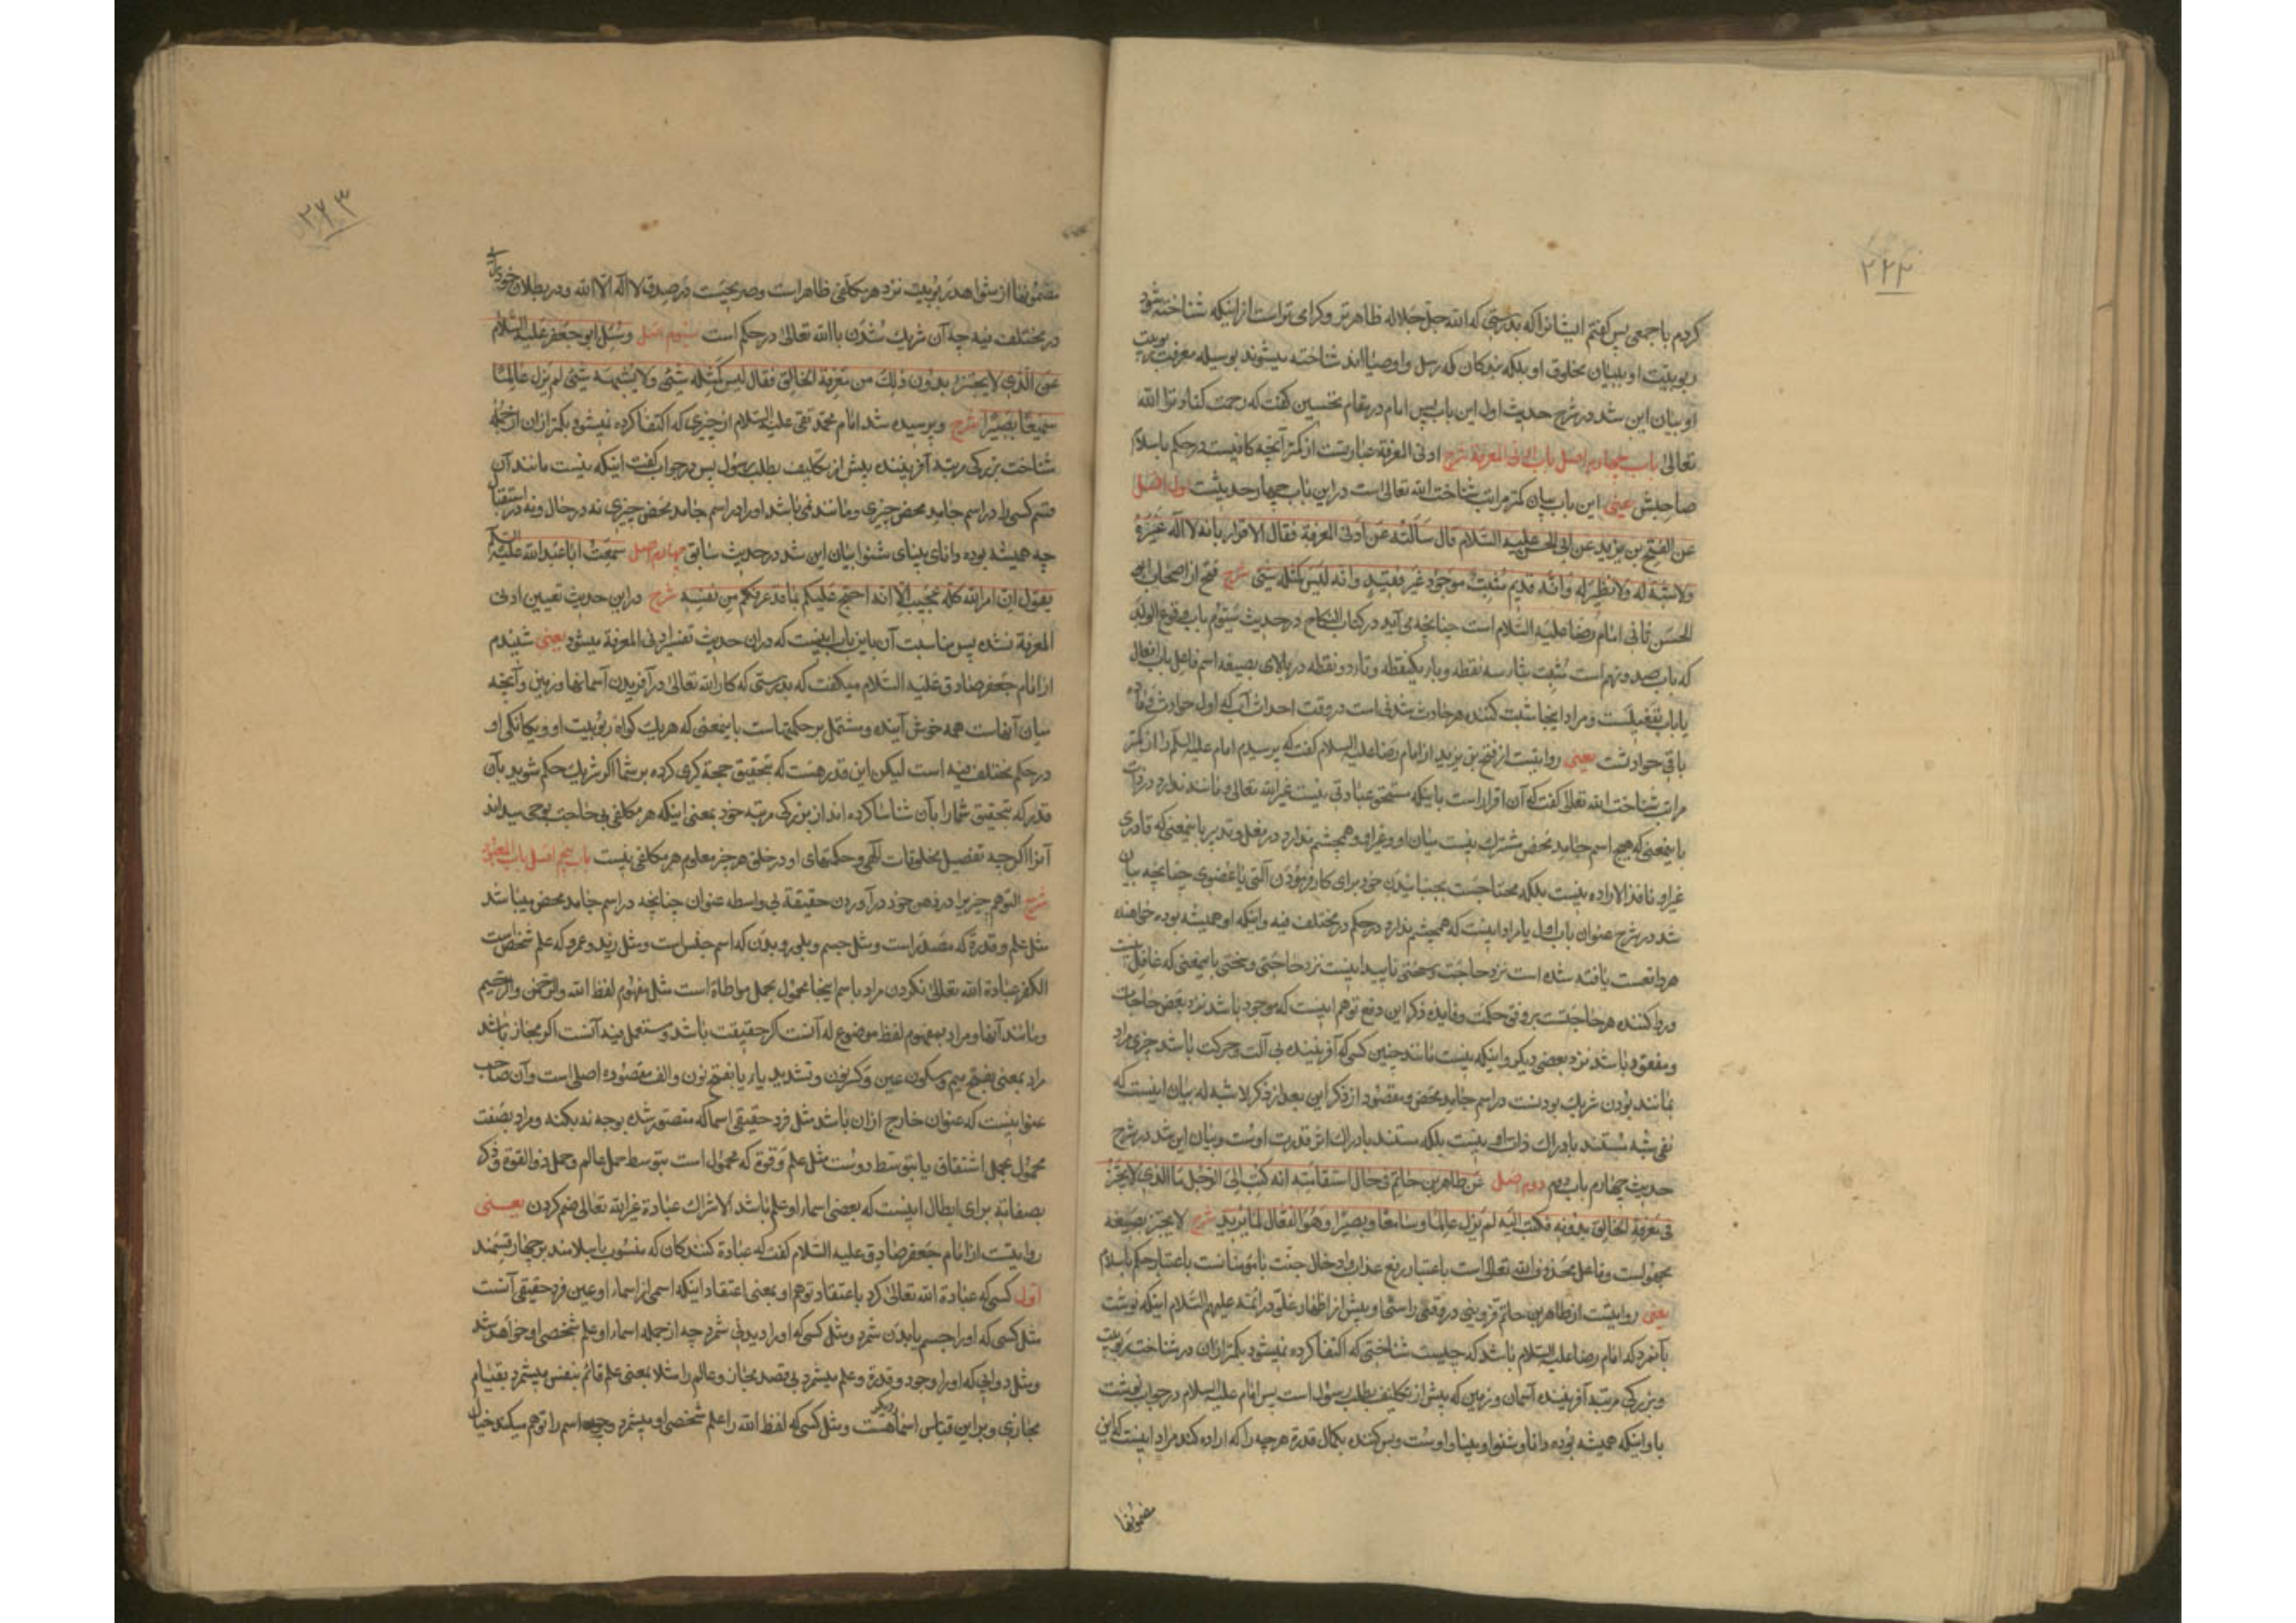 ۲۲۲
کردم با جمعی پس کفتم ایشانرا که بدرستی که الله جل جلاله ظاهرتر و کرامی تر است از اینکه شناخته شود
ربوبیّت او ببیان مخلوق او بلکه بندکان که رسل و اوصیااند شناخته میشوند بوسیله معرفت ربوبیت
او بیان این شد در شرح حدیث اول این باب پس امام در مقام تحسین کفت که رحمت کناد ترا الله
تعالی باب چهارم اصل باب ادنی المعرفة شرح ادنی المعرفة عبارتست از کمتر آنچه کافیست در حکم باسلام
صاحبش یعنی این باب بیان کمتر مراتب شناخت الله تعالی است در این باب چهار حدیثست اول اصل
عن الفتح بن یزید عن ابی الحسن علیه السّلام قال سألته عن ادنی المعرفة فقال الاقرار بانه لا اله غیره
ولا شبه له ولا نظیر له وانّه قدیم مُثبِت موجود غیر فقید وانه لیس کمثله شئ شرح فتح از اصحاب ابی
الحسن ثانی امام رضا علیه السّلام است چنانچه می‌آید در کتاب النکاح در حدیث سیّوم باب وقوع الولد
که باب صد و نهم است مُثبِت بثاء سه نقطه و باء یکنقطه و تاء دو نقطه در بالای بصیغه اسم فاعل باب افعال
یا باب تفعیلست و مراد اینجا ثبت کننده هر حادث شدنی است در وقت احداث آب که اول حوادث و مادّه
باقی حوادثست یعنی روایتست از فتح بن یزید از امام رضا علیه السلام کفت که پرسیدم امام علیه السلم را از کمتر
مراتب شناخت الله تعالی کفت که آن اقرار است باینکه مستحق عبادتی نیست غیر الله تعالی و مانند ندارد در ذات
باینمعنی که هیچ اسم جامد محض مشترک نیست میان او و غیر او و همچشم ندارد در فعل و تدبیر باینمعنی که قادری
غیر او نافذ الاراده نیست بلکه محتاجست بجنبانیدن خود برای کار فرمودن آلتی یا عضوی چنانچه بیان
شد در شرح عنوان باب اول یا مراد اینست که همچشم ندارد در حکم در مختلف فیه و اینکه او همیشه بوده خواهنده
هر واقعست یافته شده است نزد حاجت و محنتی ناپیدا نیست نزد حاجتی و محنتی باینمعنی که غافل نیست
و روا کننده هر حاجتست بر وفق حکمت و فایده ذکر این دفع توهم اینست که موجود باشد نزد بعض حاجات
و مفقود باشد نزد بعضی دیکر و اینکه نیست مانند چنین کسی که آفریننده بی آلت و حرکت باشد چیزی مراد
بمانند بودن شریک بودنست در اسم جامد محض و مقصود از ذکر این بعد از ذکر لا شبه له بیان اینست که
نفی شبه مستند بادراک ذات او نیست بلکه مستند بادراک اثر قدرت اوست و بیان این شد در شرح
حدیث چهارم باب دوم دوم اصل عن طاهر بن حاتم فی حال استقامته انه کتب الی الرجل ما الذی لا یجتزأ
فی معرفة الخالق بدونه فکتب الیه لم یزل عالمًا وسامعًا وبصیرًا وهو الفعّال لما یرید شرح لا یجتزء بصیغه
مجهول است و فاعل محذوف الله تعالی است باعتبار رفع عذاب و ادخال جنّت یا مومنانست باعتبار حکم باسلام
یعنی روایتست از طاهر بن حاتم قزوینی در وقتی راستی او پیش از اظهار غلوّ در ائمه علیهم السّلام اینکه نوشت
بآنمرد که امام رضا علیه السلام باشد که چیست شناختی که اکتفا کرده نمیشود بکمتر از آن در شناخت ربوبیت
و بزرکی مرتبه آفریننده آسمان و زمین که پیش از تکلیف بطلب رسول است پس امام علیه السلام در جواب نوشت
باو اینکه همیشه بوده دانا و شنوا و بینا و اوست و بس کننده بکمال قدرة هر چه را که اراده کند مراد اینست که این
مضمونها
۲۲۳
مضمونها از شواهد ربوبیت نزد هر مکلفی ظاهر است و صریحست در صدق لا اله الا الله و در بطلان خودرایی
در مختلف فیه چه آن شریک شدن با الله تعالی در حکم است سیّوم اصل وسُئل ابو جعفر علیه السّلام
عن الذی لا یجتزء بدون ذلک من معرفة الخالق فقال لیس کمثله شئ ولا یشبهه شئ لم یزل عالمًا
سمیعًا بصیرًا شرح و پرسیده شد امام محمد تقی علیه السلام از چیزی که اکتفا کرده نمیشود بکمتر از آن از جمله
شناخت بزرکی مرتبه آفریننده پیش از تکلیف بطلب رسول پس در جواب کفت اینکه نیست مانند آن
قسم کسی را در اسم جامد محض چیزی و مانند نمی‌باشد او را در اسم جامد محض چیزی نه در حال و نه در استقبال
چه همیشه بوده دانای بینای شنوا بیان این شد در حدیث سابق چهارم اصل سمعت ابا عبد الله علیه السلم
یقول ان امر الله کله عجیب الا انه احتج علیکم بما قد عرفکم من نفسه شرح در این حدیث تعیین ادنی
المعرفة نشده پس مناسبت آن باین باب اینست که در ان حدیث تفسیر ادنی المعرفة میشود یعنی شنیدم
از امام جعفر صادق علیه السّلام میکفت که بدرستی که کار الله تعالی در آفریدن آسمانها و زمین و آنچه
میان آنهاست همه خوش آینده و مشتمل بر حکمتهاست باینمعنی که هر یک کواه ربوبیت او و یکانکی او
در حکم مختلف فیه است لیکن این قدر هست که بتحقیق حجة کیری کرده بر شما اکر شریک حکم شوید بآن
قدر که بتحقیق شما را بآن شناسا کرده اند از بزرکی مرتبه خود بمعنی اینکه هر مکلفی بی حاجت بوحی میداند
آنرا اکر چه تفصیل مخلوقات الهی و حکمتهای او در خلق هر چیز معلوم هر مکلفی نیست باب پنجم اصل باب المعبود
شرح التوهم چیزیرا در ذهن خود درآوردن حقیقة بی واسطه عنوان چنانچه در اسم جامد محض میباشد
مثل علم و قدرة که مصدر است و مثل جسم و بلور و بدن که اسم جنس است و مثل زید و عمرو که علم شخص است
الکفر عبادة الله تعالی نکردن مراد باسم اینجا محمول بحمل مواطاة است مثل مفهوم لفظ الله والرّحمن والرّحیم
و مانند آنها و مراد بمفهوم لفظ موضوع له آنست اکر حقیقت باشد و مستعمل فیه آنست اکر مجاز باشد
مراد بمعنی بفتح میم و سکون عین و کسر نون و تشدید یاء یا بفتح نون و الف مقصوره اصلی است و آن صاحب
عنوانیست که عنوان خارج از ان باشد مثل فرد حقیقی اسما که متصور شده بوجه نه بکنه و مراد بصفت
محمول بحمل اشتقاق یا بتوسط ذوست مثل علم و قوة که محمول است بتوسط حمل عالم و حمل ذو القوة و ذکر
بصفاته برای ابطال اینست که بعضی اسماء او علم باشد الاشراک عبادة غیر الله تعالی ضم کردن یعنی
روایتست از امام جعفر صادق علیه السّلام کفت که عبادة کنندکان که منسوب باسلامند بر چهار قسمند
اوّل کسی که عبادة الله تعالی کرد باعتقاد توهم او بمعنی اعتقاد اینکه اسمی از اسماء او عین فرد حقیقی آنست
مثل کسی که او را جسم یا بدن شمرد و مثل کسی که او را دیدنی شمرد چه از جمله اسماء او علم شخصی او خواهد شد
و مثل دوانی که او را وجود و قدرة و علم میشمرد بی قصد مجاز و عالم را مثلا بمعنی علم قائم بنفس میشمرد بقیام
مجازی و بر این قیاس اسماء دیکر هست و مثل کسی که لفظ الله را علم شخصی او میشمرد و چه اسم را توهم میکند خیال